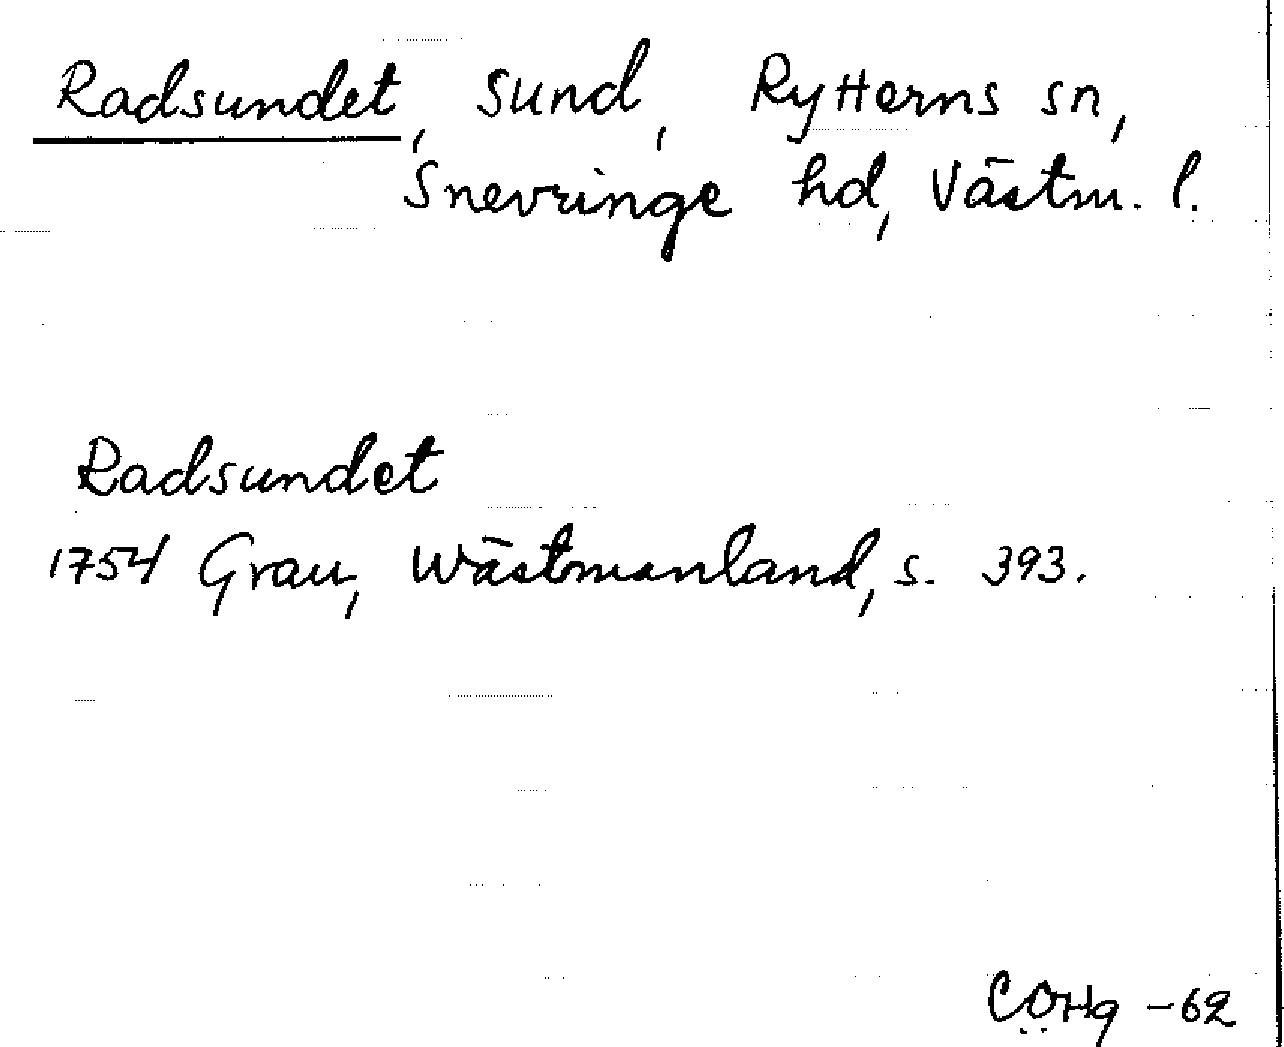 Radsundet, sund, Rytterns sn,
Snevringe hd, Västm. l.
Radsundet
1754 Grau, Wästmanland, s. 393.
CÖHg -62